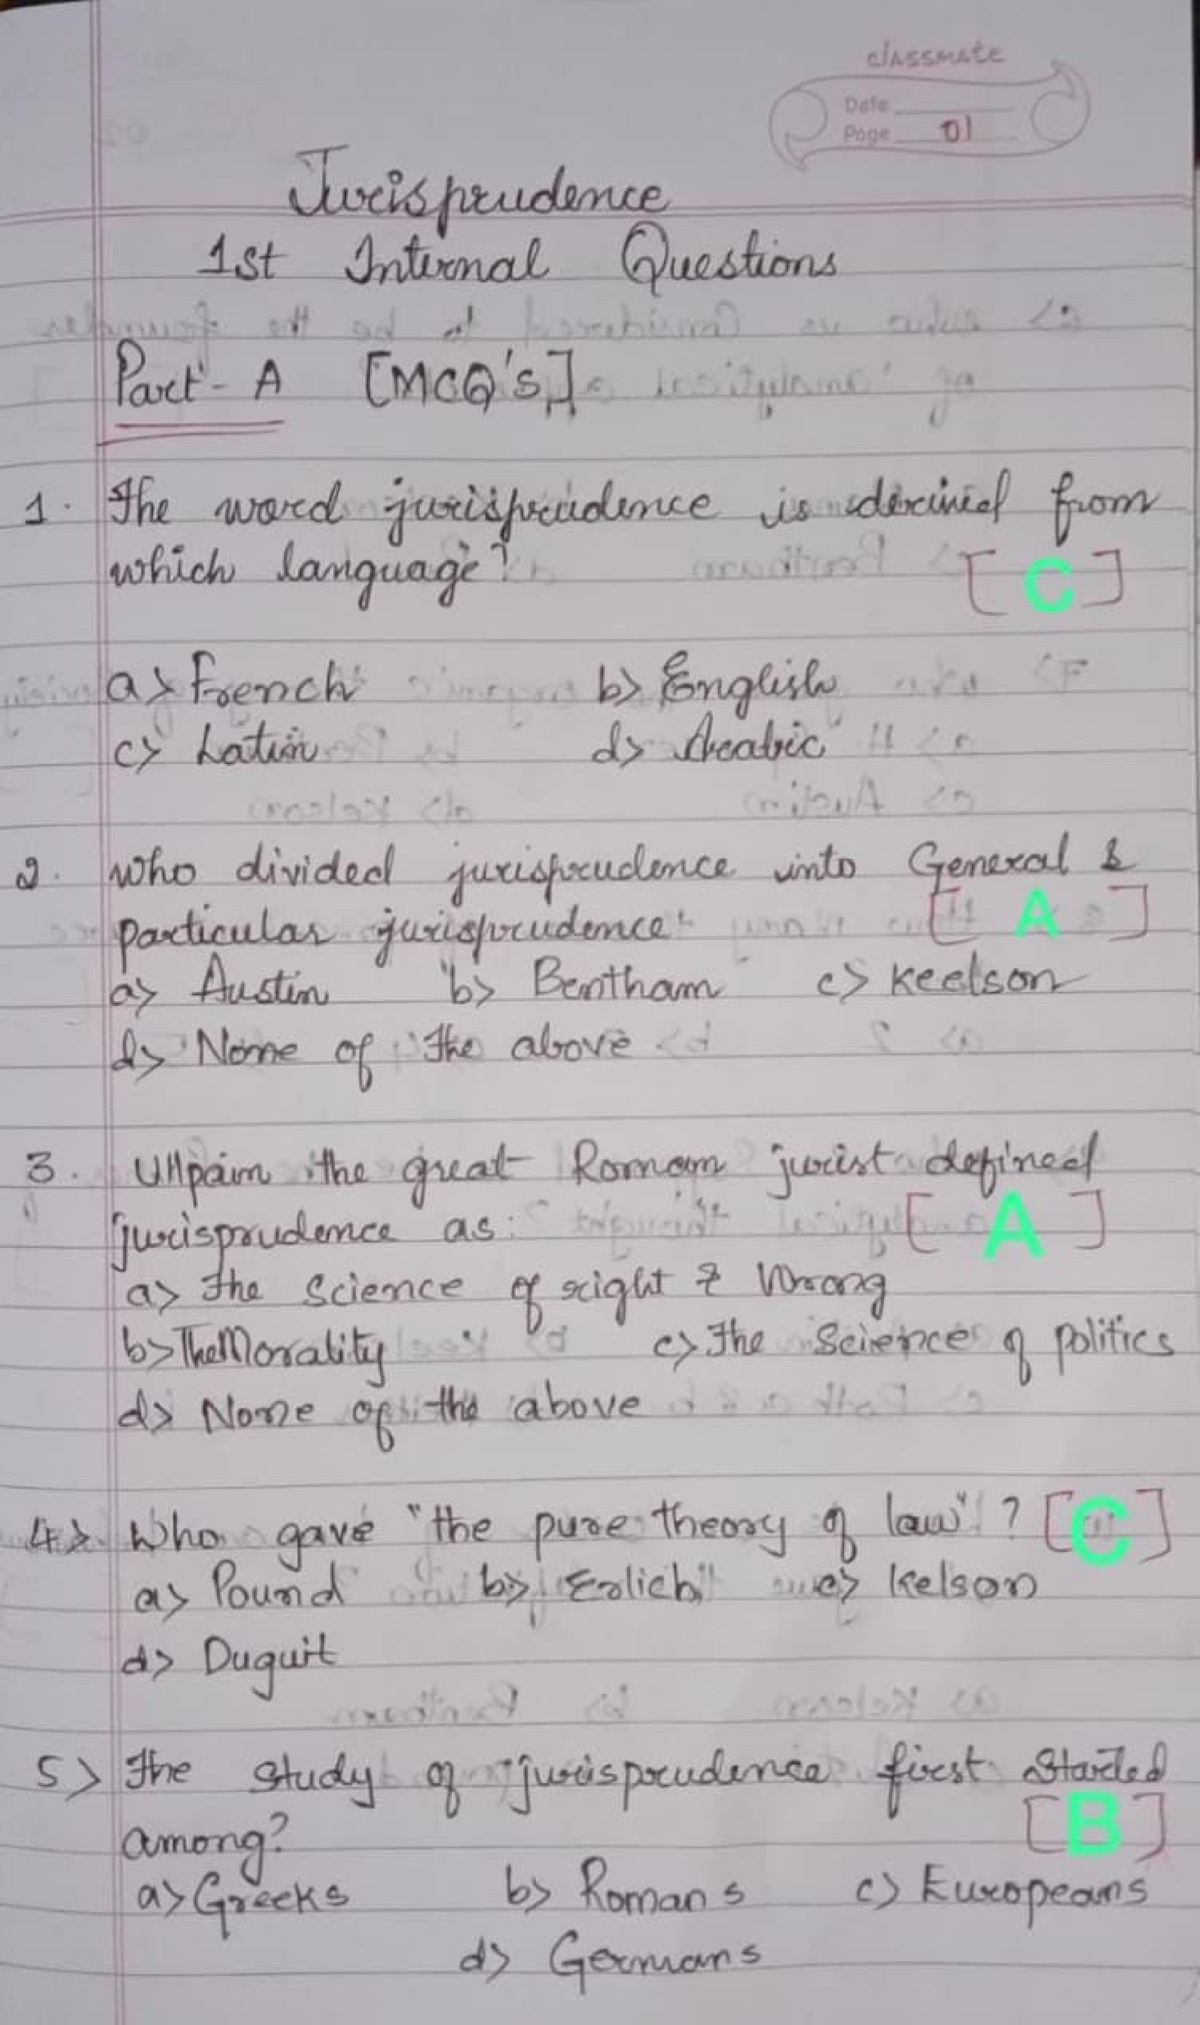 classmate
Date
Page 01
Jurisprudence
1st Internal Questions
Part - A [MCQ's]
1. The word jurisprudence is derived from
which language? [C]
a) French b) English
c) Latin d) Arabic
2. who divided jurisprudence into General &
particular jurisprudence [A]
a) Austin b) Bentham c) Keelson
d) None of the above
3. Ullpain the great Roman jurist defined
jurisprudence as: [A]
a) The Science of right & Wrong
b) The Morality c) The Science of politics
d) None of the above
4) Who gave "the pure theory of law"? [C]
a) Pound b) Erlich c) Kelson
d) Duguit
5) The study of jurisprudence first Started
among? [B]
a) Greeks b) Romans c) Europeans
d) Germans